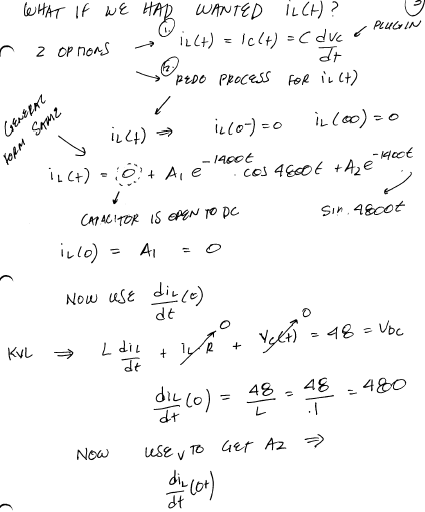 WHAT IF WE HAD WANTED iL(t)? (3)
2 OPTIONS → (1) iL(t) = IC(t) = C dvc/dt ← PLUGIN
→ (2) REDO PROCESS FOR iL(t)
GENERAL FORM SAME
iL(t) ⇒ iL(0-) = 0 iL(∞) = 0
iL(t) = 0 + A1 e^-1400t · cos 4800t + A2 e^-1400t
sin 4800t
CAPACITOR IS OPEN TO DC
iL(0) = A1 = 0
NOW USE diL/dt (0)
KVL ⇒ L diL/dt + ILR 0 + Vc(t) 0 = 48 = VDC
diL/dt (0) = 48/L = 48/.1 = 480
NOW USE ∨ TO GET A2 ⇒
diL/dt (0+)